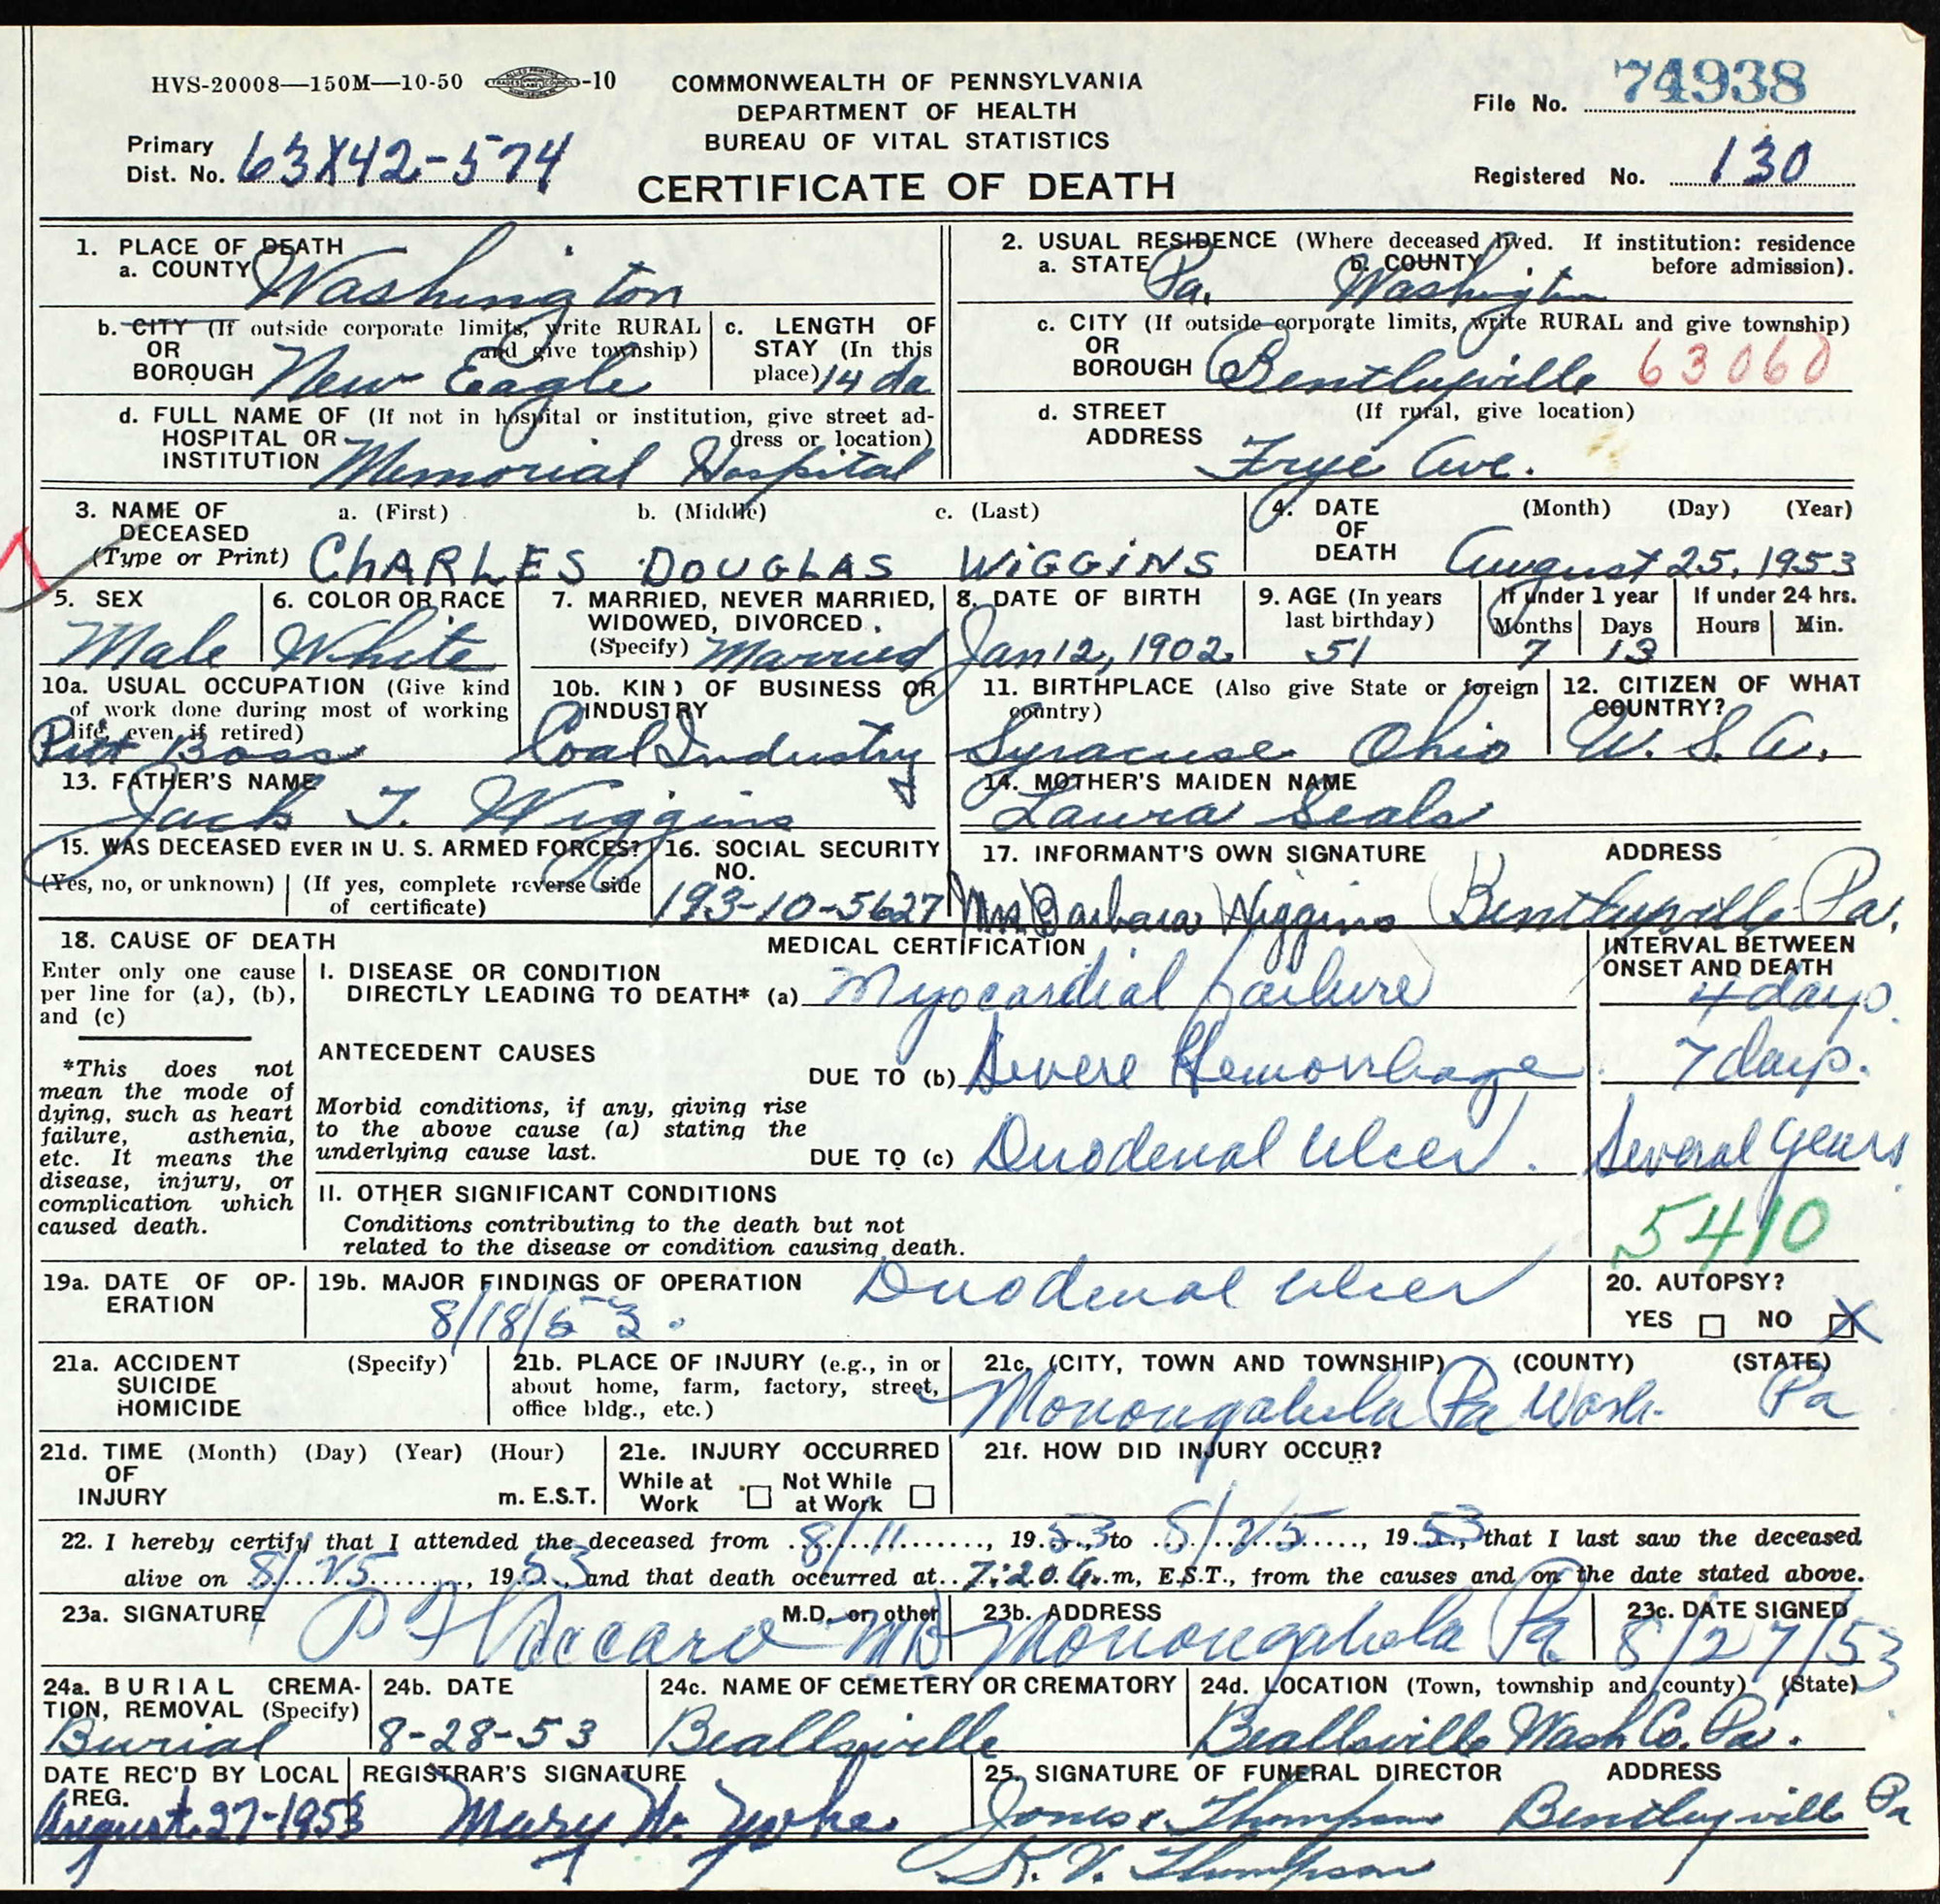 HVS-20008—150M—10-50 -10
COMMONWEALTH OF PENNSYLVANIA
DEPARTMENT OF HEALTH
BUREAU OF VITAL STATISTICS
CERTIFICATE OF DEATH
File No. 74938
Primary Dist. No. 63X42-574
Registered No. 130
1. PLACE OF DEATH
a. COUNTY Washington
b. CITY (If outside corporate limits, write RURAL and give township)
OR
BOROUGH New Eagle
c. LENGTH OF STAY (In this place) 14 da
d. FULL NAME OF (If not in hospital or institution, give street address or location)
HOSPITAL OR
INSTITUTION Memorial Hospital
2. USUAL RESIDENCE (Where deceased lived. If institution: residence before admission).
a. STATE Pa. b. COUNTY Washington
c. CITY (If outside corporate limits, write RURAL and give township)
OR
BOROUGH Bentleyville 63060
d. STREET (If rural, give location)
ADDRESS Frye Ave.
3. NAME OF DECEASED (Type or Print)
a. (First) b. (Middle) c. (Last)
CHARLES DOUGLAS WIGGINS
4. DATE OF DEATH (Month) (Day) (Year)
August 25, 1953
5. SEX
Male
6. COLOR OR RACE
White
7. MARRIED, NEVER MARRIED, WIDOWED, DIVORCED.
(Specify) Married
8. DATE OF BIRTH
Jan 12, 1902
9. AGE (In years last birthday)
51
If under 1 year
Months Days
7 13
If under 24 hrs.
Hours Min.
10a. USUAL OCCUPATION (Give kind of work done during most of working life, even if retired)
Pitt Boss
10b. KIND OF BUSINESS OR INDUSTRY
Coal Industry
11. BIRTHPLACE (Also give State or foreign country)
Syracuse Ohio
12. CITIZEN OF WHAT COUNTRY?
U. S. A.
13. FATHER'S NAME
Jack T. Wiggins
14. MOTHER'S MAIDEN NAME
Laura Seals
15. WAS DECEASED EVER IN U. S. ARMED FORCES?
(Yes, no, or unknown) (If yes, complete reverse side of certificate)
16. SOCIAL SECURITY NO.
193-10-5627
17. INFORMANT'S OWN SIGNATURE ADDRESS
Mrs Barbara Wiggins Bentleyville Pa.
18. CAUSE OF DEATH
Enter only one cause per line for (a), (b), and (c)
*This does not mean the mode of dying, such as heart failure, asthenia, etc. It means the disease, injury, or complication which caused death.
MEDICAL CERTIFICATION
INTERVAL BETWEEN ONSET AND DEATH
I. DISEASE OR CONDITION DIRECTLY LEADING TO DEATH* (a) Myocardial failure 4 days.
ANTECEDENT CAUSES
DUE TO (b) Severe Hemorrhage 7 days.
Morbid conditions, if any, giving rise to the above cause (a) stating the underlying cause last.
DUE TO (c) Duodenal Ulcer. Several Years
II. OTHER SIGNIFICANT CONDITIONS
Conditions contributing to the death but not related to the disease or condition causing death.
5410
19a. DATE OF OPERATION
19b. MAJOR FINDINGS OF OPERATION
8/18/53. Duodenal ulcer
20. AUTOPSY?
YES NO X
21a. ACCIDENT SUICIDE HOMICIDE (Specify)
21b. PLACE OF INJURY (e.g., in or about home, farm, factory, street, office bldg., etc.)
21c. (CITY, TOWN AND TOWNSHIP) (COUNTY) (STATE)
Monongahela Pa Wash. Pa
21d. TIME OF INJURY (Month) (Day) (Year) (Hour) m. E.S.T.
21e. INJURY OCCURRED
While at Work Not While at Work
21f. HOW DID INJURY OCCUR?
22. I hereby certify that I attended the deceased from 8/11, 1953, to 8/25, 1953, that I last saw the deceased
alive on 8/25, 1953 and that death occurred at 7:20 m, E.S.T., from the causes and on the date stated above.
23a. SIGNATURE M.D. or other
MD
23b. ADDRESS
Monongahela Pa
23c. DATE SIGNED
8/27/53
24a. BURIAL CREMATION, REMOVAL (Specify)
Burial
24b. DATE
8-28-53
24c. NAME OF CEMETERY OR CREMATORY
Beallsville
24d. LOCATION (Town, township and county) (State)
Beallsville Wash Co. Pa.
DATE REC'D BY LOCAL REG.
August 27-1953
REGISTRAR'S SIGNATURE
Mary N. Yohe
25. SIGNATURE OF FUNERAL DIRECTOR ADDRESS
Jones & Thompson Bentleyville Pa
K. V. Thompson